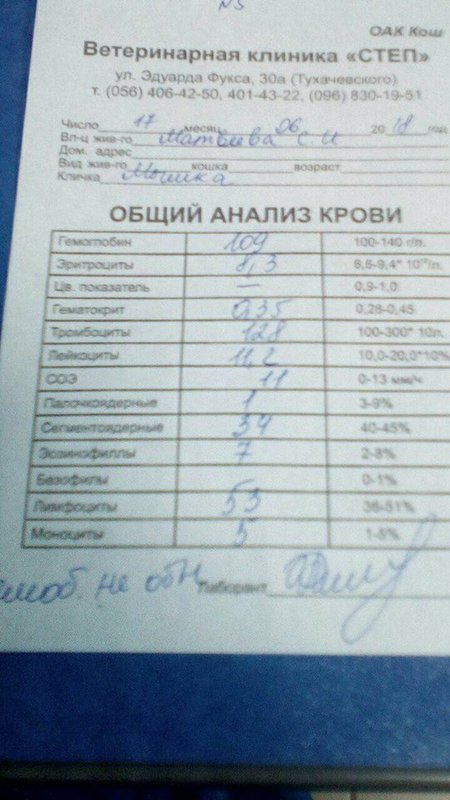 N5
ОАК Кош
Ветеринарная клиника «СТЕП»
ул. Эдуарда Фукса, 30а (Тухачевского)
т. (056) 406-42-50, 401-43-22, (096) 830-19-51
Число 17 месяц 06 2018 год
Вл-ц жив-го Матвиева С. И
Дом. адрес
Вид жив-го кошка возраст
Кличка Мошка
ОБЩИЙ АНАЛИЗ КРОВИ
Гемоглобин 109 100-140 г/л.
Эритроциты 8,3 6,6-9,4* 10¹²/л.
Цв. показатель — 0,9-1,0
Гематокрит 0,35 0,28-0,45
Тромбоциты 128 100-300* 10л.
Лейкоциты 11,2 10,0-20,0*10%
СОЭ 11 0-13 мм/ч
Палочкоядерные 1 3-9%
Сегментоядерные 34 40-45%
Эозинофиллы 7 2-8%
Базофилы 0-1%
Лимфоциты 53 36-51%
Моноциты 5 1-5%
не обн Лаборант